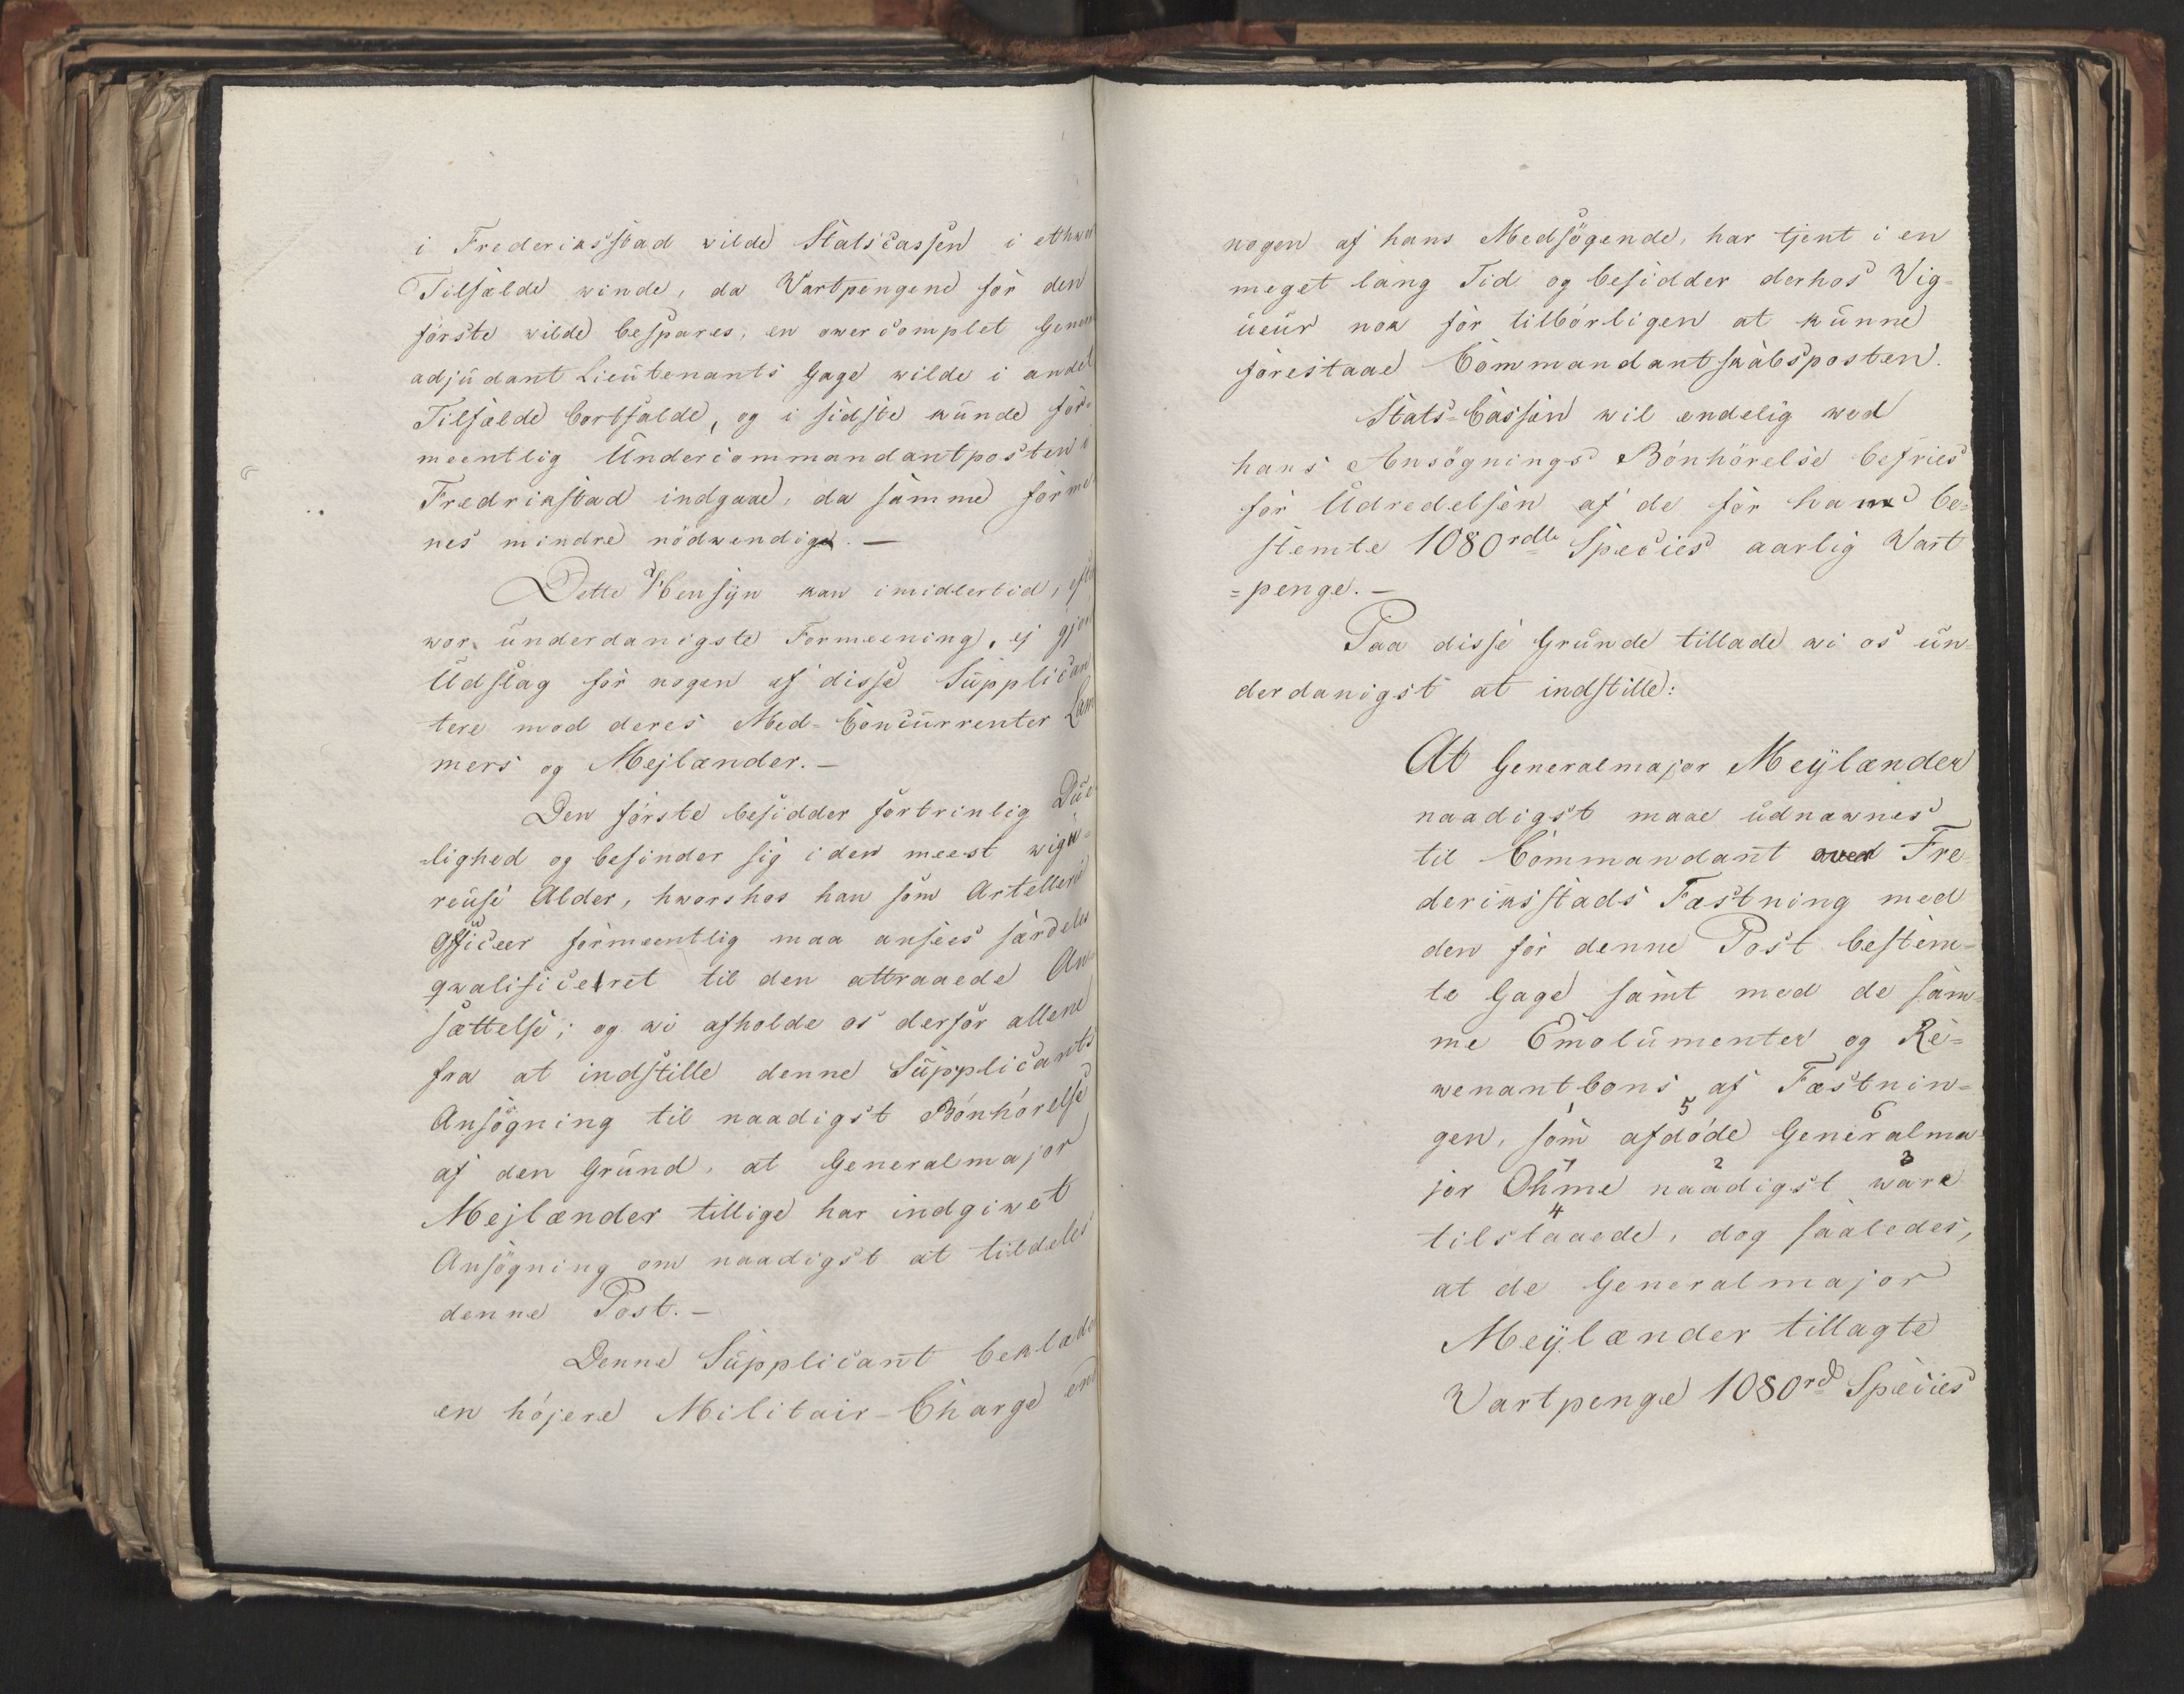 i Frederiksstad vilde Statscassen i ethwert
Tilfælde winde, da Vartpengene for den
første wilde bespares, en overcomplet General
adjudant Lieutenants Gage wilde i andet
Tilfælde bortfalde, og i sidste kunde for-
meentlig Undercommandantposten i
Fredrikstad indgaae, da samme forme-
nes mindre nödwendig. —
Dette Hensÿn kan imidlertid, efter
wor underdanigste Formeening, ej gjøre
Udslag for nogen af disse Supplican
tere mod deres Med-Concurrenter Lam
mers og Mejlænder. —
Den første besidder fortrinlig Due-
-lighed og befinder sig i den meest wigu-
reuse Alder, hworhos han som Artellerie
Officeer formeentlig maa ansees særdeles
qwalificeret til den attraaede An-
sættelse; og wi afholde os derfor allene
fra at indstille denne Supplicants
Ansögning til naadigst Bönhörelse
af den Grund, at Generalmajor
Mejlænder tillige har indgiwet
Ansögning om naadigst at tildeles
denne Post. —
Denne Supplicant beklæder
en höjere Militair-Charge end
nogen af hans Medsögende, har tjent i en
meget lang Tid og besidder derhos Vig-
ueur nok for tilbörligen at kunne
forestaae Commandantskabsposten.
Stats-Cassen wil endelig wed
hans Ansögnings Bönhörelse befries
for Udredelsen af de for ham be-
stemte 1080 rdlr Species aarlig Vart
=penge. —
Paa disse Grunde tillade wi os un-
derdanigst at indstille:
At Generalmajor Meÿlænder
naadigst maae udnæwnes
til Commandant over Fre-
deriksstads Fæstning med
den for denne Post bestem-
te Gage samt med de sam-
me Emolumenter og Re-
wenantbons af Fæstnin-
gen, som afdöde Generalma
1 5 6
jor Ohme naadigst ware
7 2 3
tilstaaede, dog saaledes,
4
at de Generalmajor
Meÿlænder tillagte
Vartpenge 1080 rd Species